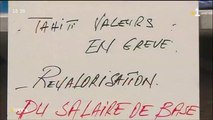 - TAHITI VALEURS
EN GREVE.
- REVALORISATION.
DU SALAIRE DE BASE